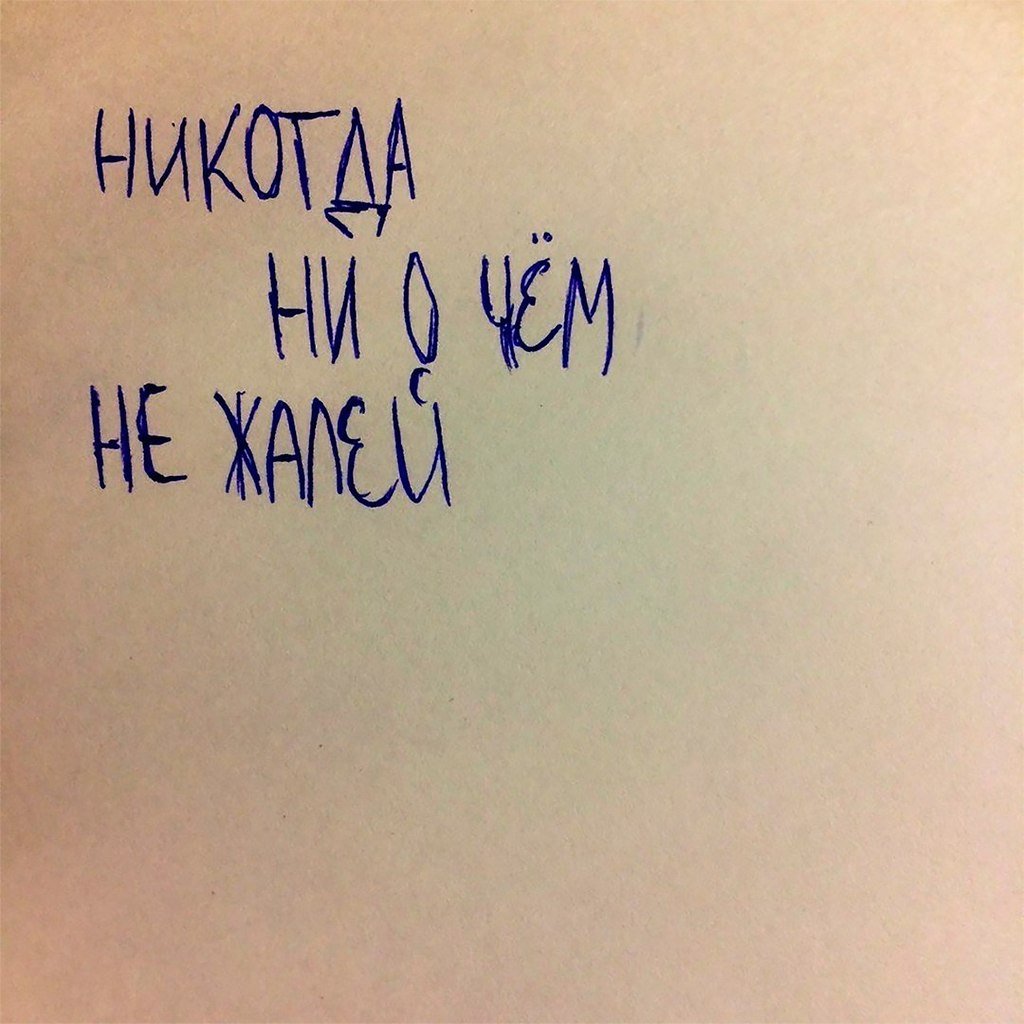 НИКОГДА
НИ О ЧЁМ
НЕ ЖАЛЕЙ